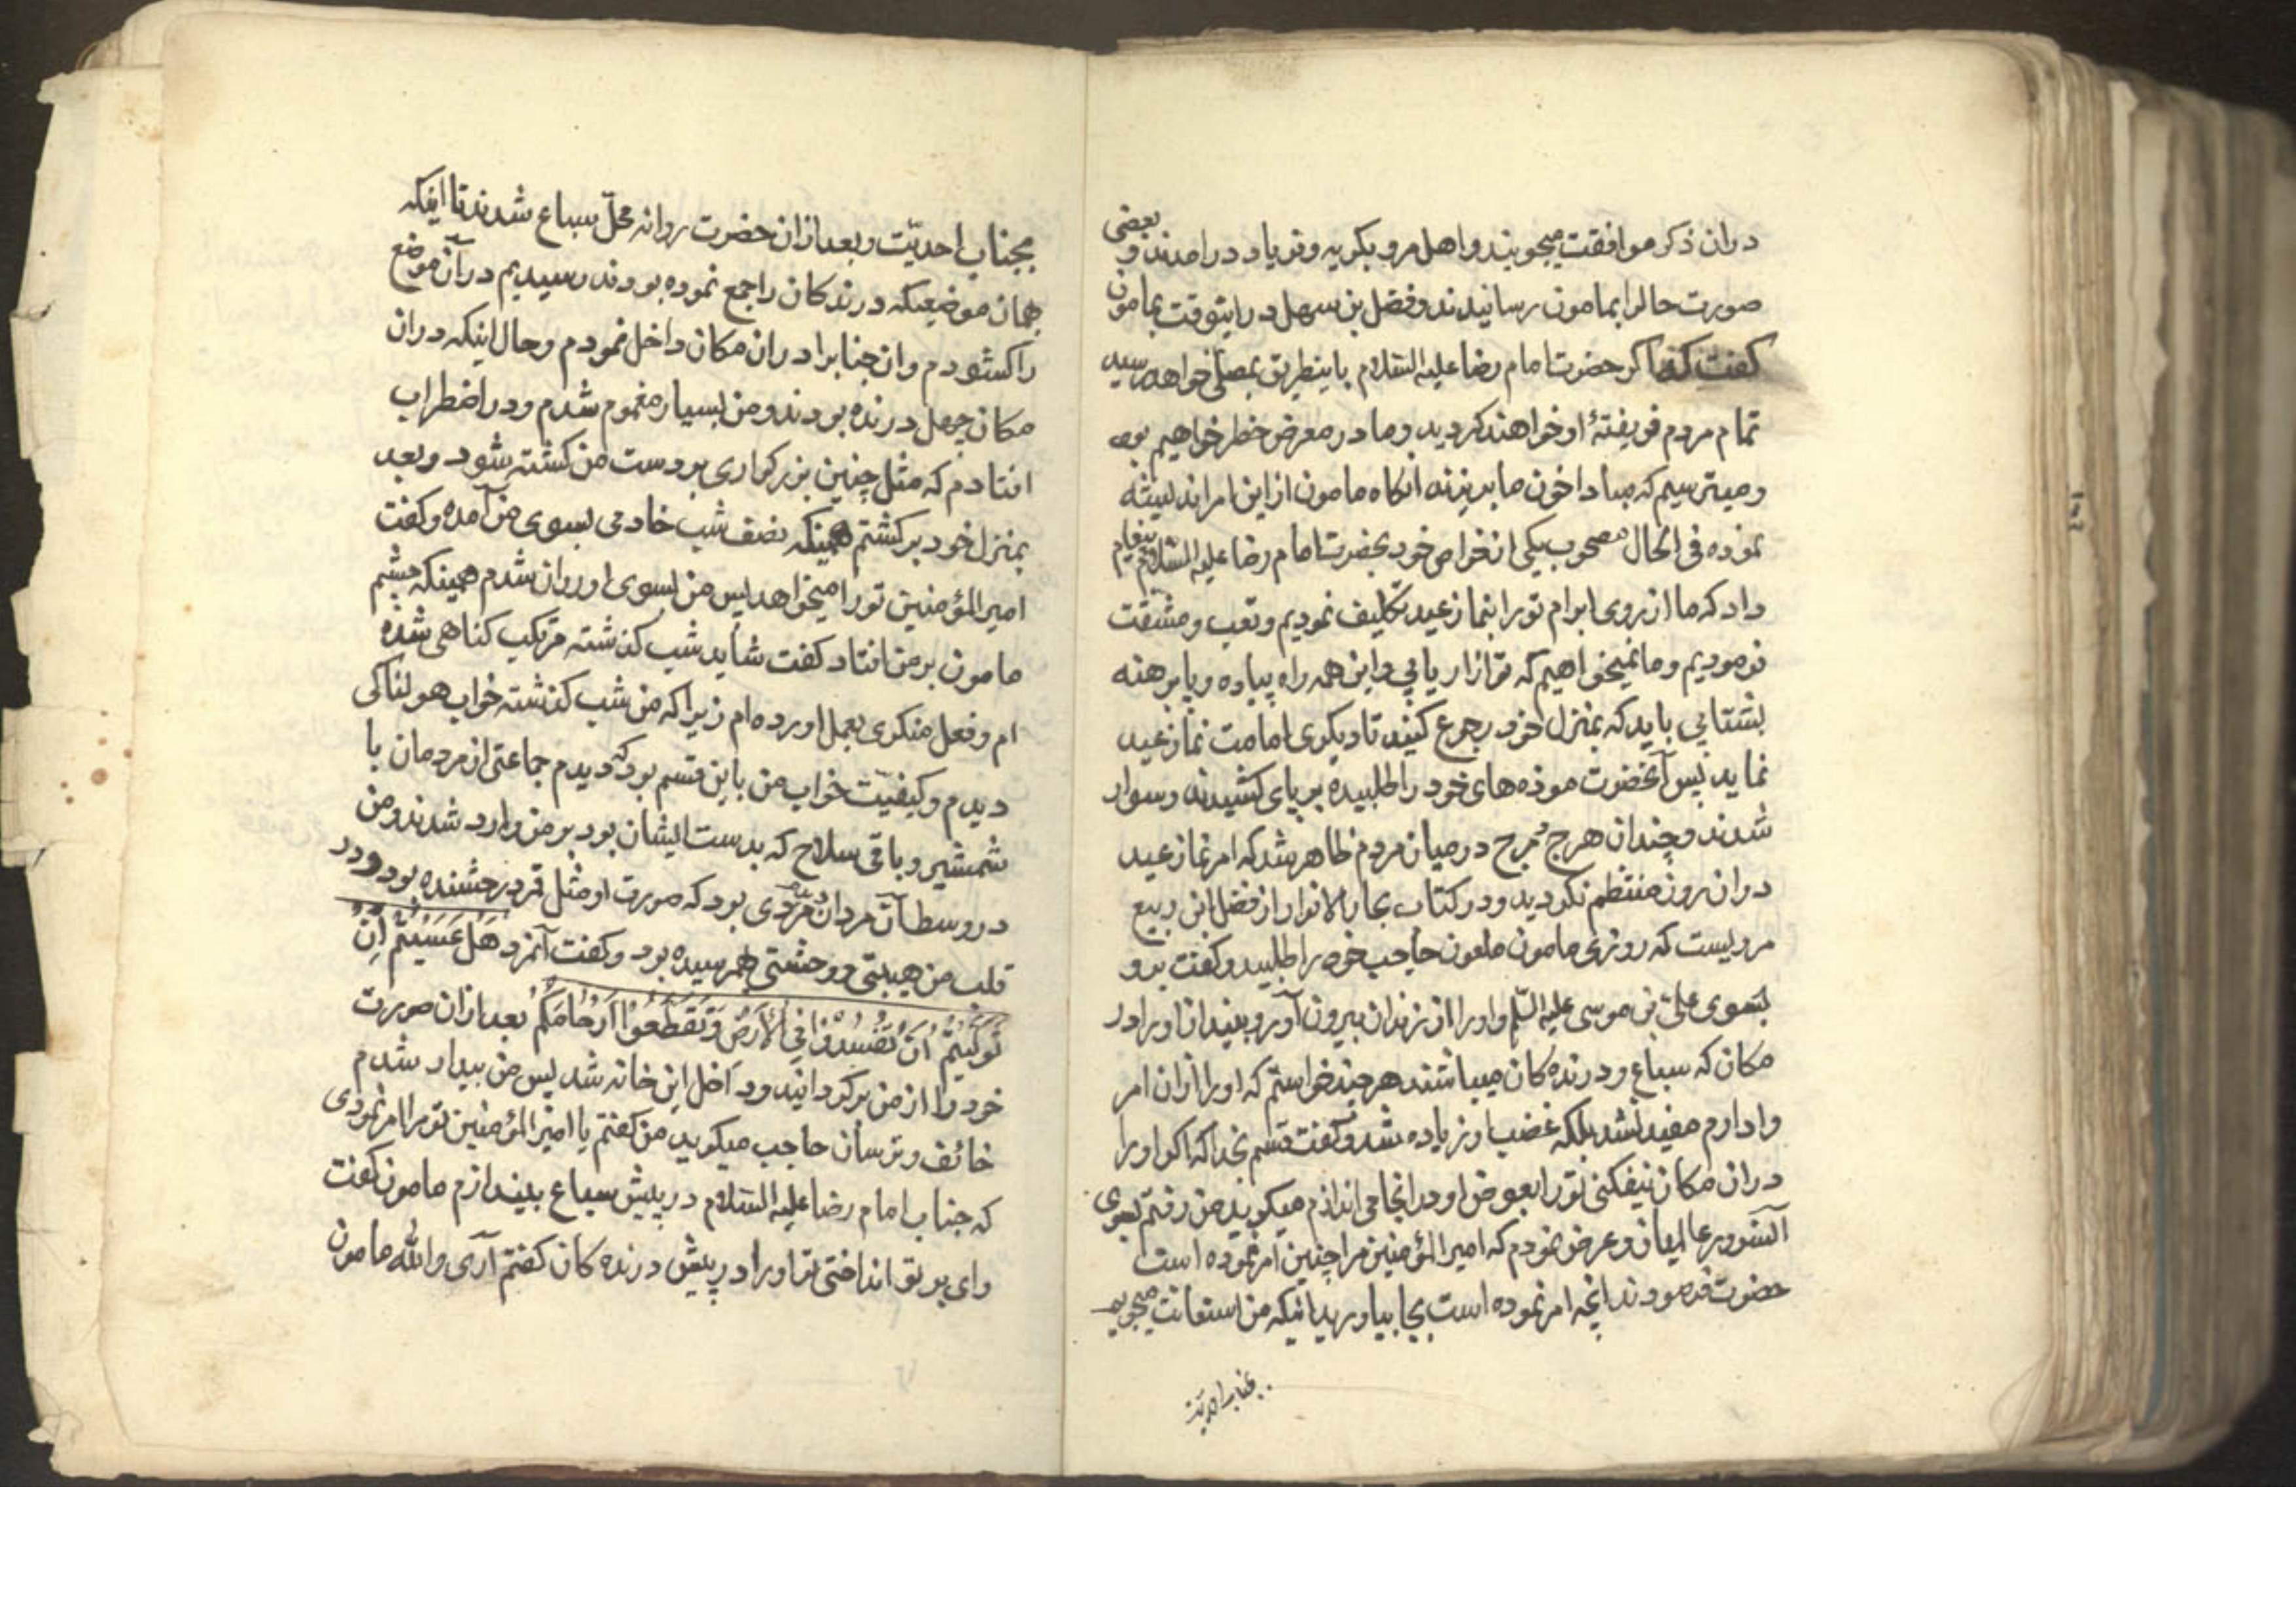 دران ذکر موافقت میجویند و اهل مرو بکریه و فریاد درامدند و بعضی
صورت حالرا بمامون رسانیدند و فضل بن سهل دراینوقت بمامون
کفت که اکر حضرت امام رضا علیه السلام باینطریق بمصلی خواهد رسید
تمام مردم فریفتهٔ او خواهند کردید و ما در معرض خطر خواهیم بود
و میترسیم که مبادا خون ما بریزند انکاه مامون از این امر اندیشه
نموده فی الحال مصحوب یکی از خواص خود بحضرت امام رضا علیه السلام پیغام
داد که ما از روی ابرام تو را بنماز عید تکلیف نمودیم و تعب و مشقت
فرمودیم و ما نمیخواهیم که تو ازار یابی و این همه راه پیاده و پابرهنه
بشتابی باید که بمنزل خود رجوع کنید تا دیکری امامت نماز عید
نماید پس آنحضرت موزه های خود را طلبیده بر پای کشیدند و سوار
شدند و چندان هرج و مرج در میان مردم ظاهر شد که امر نماز عید
دران روز منتظم نکردید و در کتاب بحار الانوار از فضل ابن ربیع
مرویست که روزی مامون ملعون حاجب خود را طلبید و کفت برو
بسوی علی بن موسی علیه السلم و او را از زندان بیرون آور و بینداز او را در
مکان که سباع و درنده کان میباشند هر چند خواستم که او را ازان امر
وادارم مفید نشد بلکه غضب او زیاده شد و کفت قسم بخدا که اکر او را
دران مکان نیفکنی تو را بعوض او در انجا می اندازم میکوید من رفتم بسوی
آنسرور عالمیان و عرض نمودم که امیر المؤمنین مرا چنین امر نموده است
حضرت فرمودند انچه امر نموده است بجا بیاورید انیکه من استعانت میجویم
بجناب احدیت
بجناب احدیّت و بعد ازان حضرت روانه محلّ سباع شدند تا اینکه
بهمان موضعیکه درندکان را جمع نموده بودند رسیدیم در آن موضع
را کشودم و ان جنابرا دران مکان داخل نمودم و حال اینکه دران
مکان چهل درنده بودند و من بسیار مغموم شدم و در اضطراب
افتادم که مثل چنین بزرکواری بر دست من کشته شود و بعد
بمنزل خود برکشتم همینکه نصف شب خادمی بسوی من آمده و کفت
امیر المؤمنین تو را میخواهد پس من بسوی او روان شدم همینکه چشم
مامون بر من افتاد کفت شاید شب کذشته مرتکب کناهی شده
ام و فعل منکری بعمل اورده ام زیرا که من شب کذشته خواب هولناکی
دیدم و کیفیّت خواب من باین قسم بود که دیدم جماعتی از مردمان با
شمشیر و باقی سلاح که بدست ایشان بود بر من وارد شدند و من
در وسط آن مردان مردی بود که صورت او مثل قمر درخشنده بود و در
قلب من هیبتی و وحشتی بهم رسیده بود و کفت آنمرد هَل عَسَیْتُمْ اِنْ
تَوَلَّیْتُمْ اَنْ تُفْسِدُوْا فِی الْاَرْضِ وَ تُقَطِّعُوْا اَرْحَامَکُمْ بعد ازان صورت
خود را از من برکردانید و داخل این خانه شد پس من بیدار شدم
خائف و ترسان حاجب میکوید من کفتم یا امیر المؤمنین تو مرا امر نمودی
که جناب امام رضا علیه السلام در پیش سباع بیندازم مامون کفت
وای بر تو انداختی تو او را در پیش درنده کان کفتم آری والله مامون